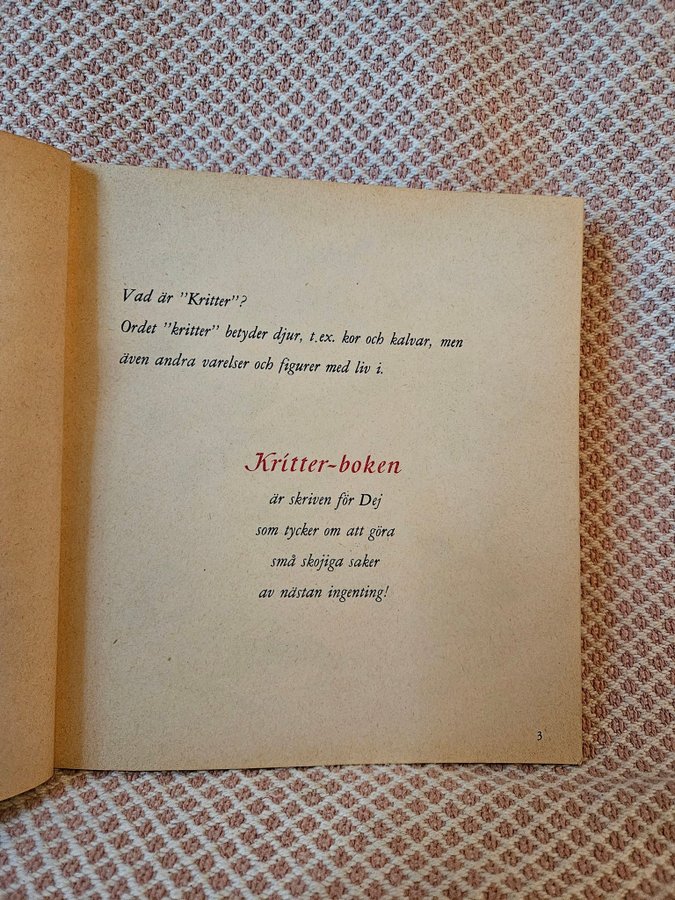 Vad är ”Kritter”?
Ordet ”kritter” betyder djur, t.ex. kor och kalvar, men
även andra varelser och figurer med liv i.
Kritter-boken
är skriven för Dej
som tycker om att göra
små skojiga saker
av nästan ingenting!
3